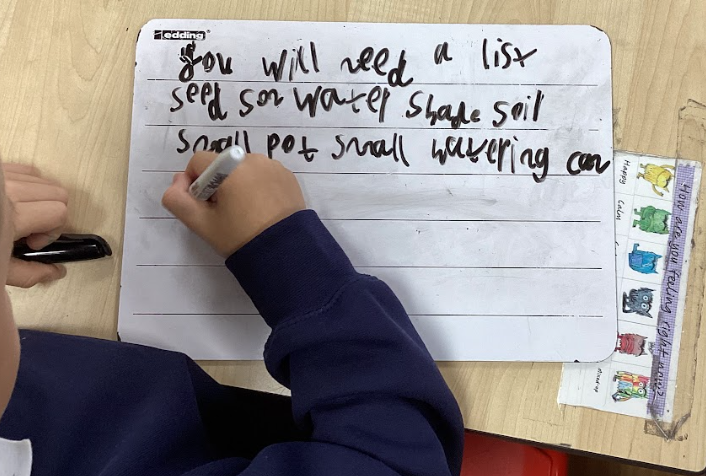 edding
you will need a list
seed son water shade soil
small pot small watering can
How are you feeling right now?
Happy
Calm